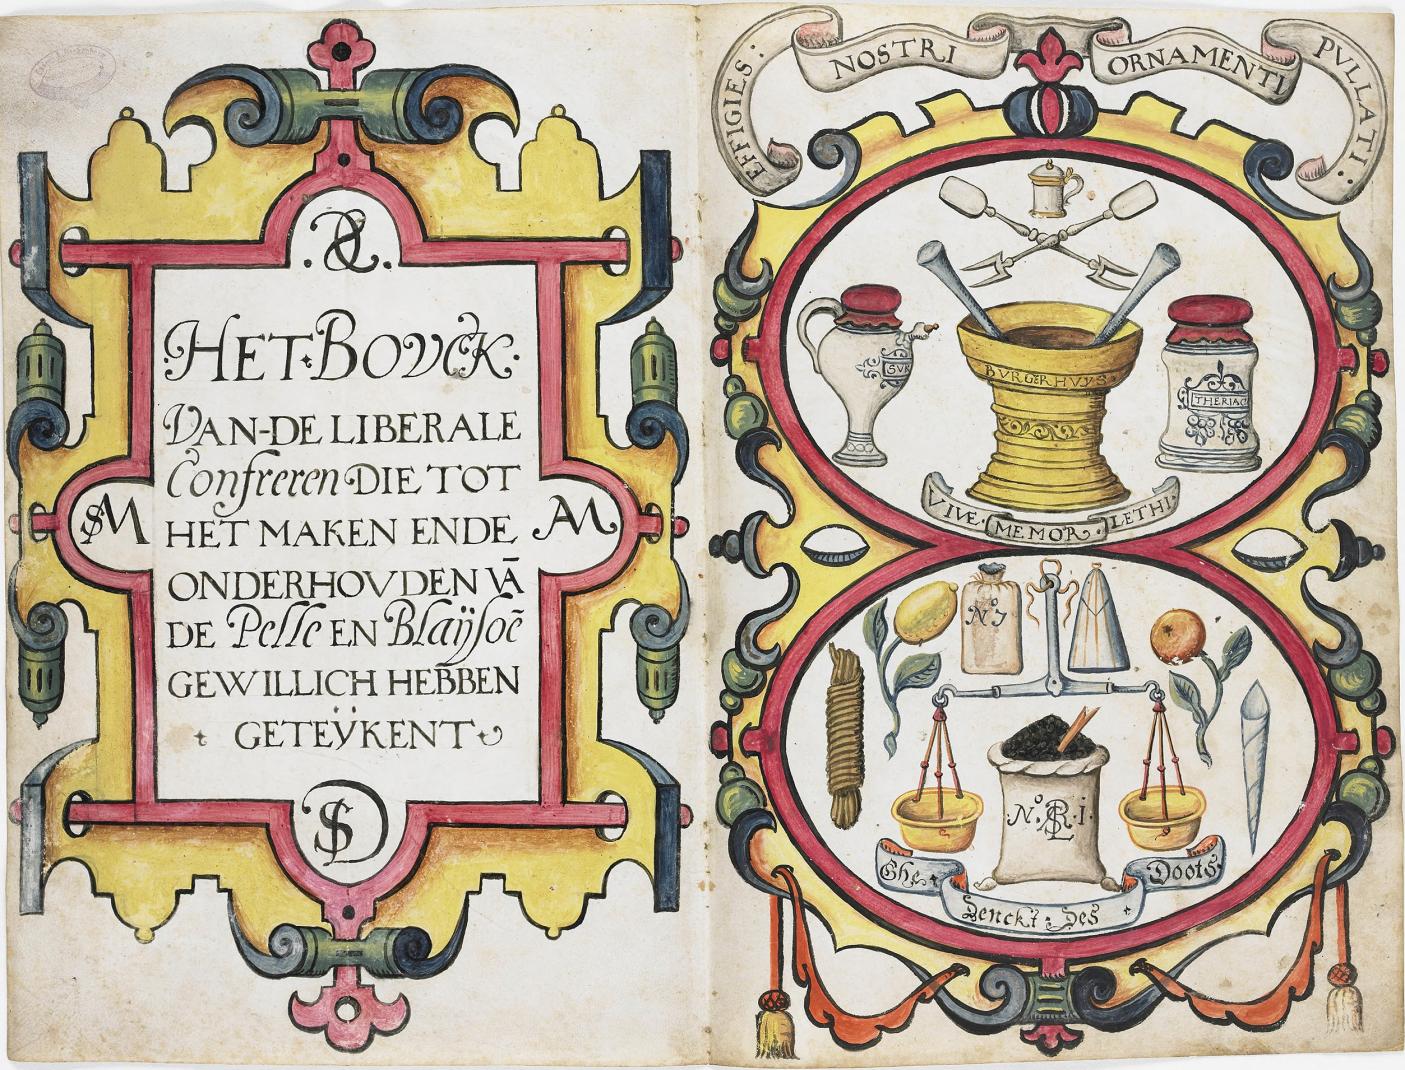 HET·BOVCK·
VAN-DE LIBERALE
Confreren DIE TOT
HET MAKEN ENDE
ONDERHOVDEN VĀ
DE Pelle EN Blaÿsoē
GEWILLICH HEBBEN
GETEŸKENT
SM
AM
SD
EFFIGIES:
NOSTRI
ORNAMENTI
PVLLATI·
SVR
BVRGERHVYS
THERIAC
VIVE· MEMOR· LETHI·
No
No. I·
Ghe
Denckt· Des
Doots